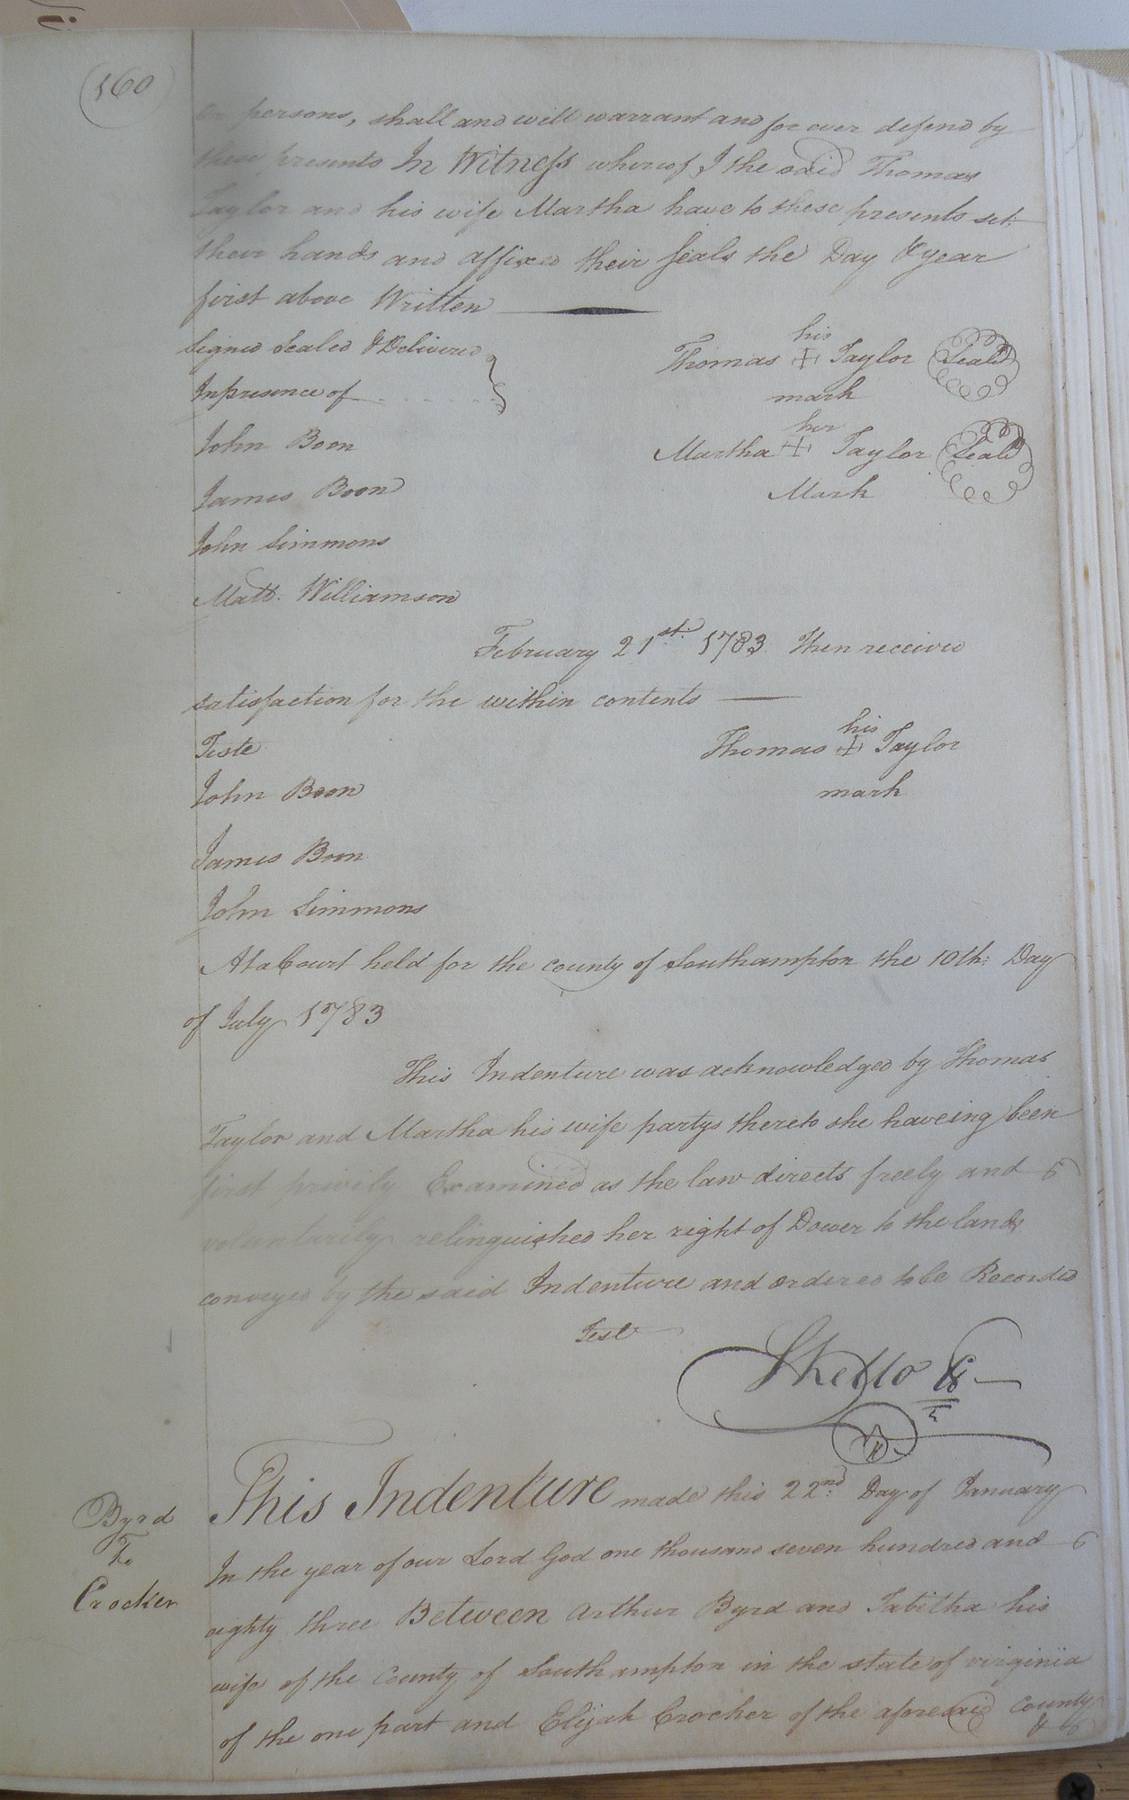 160
or persons, shall and will warrant and for ever defend by
these presents In Witness whereof I the said Thomas
Taylor and his wife Martha have to these presents set
their hands and affixed their seals the Day & year
first above Written
Signed Sealed & Delivered
In presence of
his
Thomas + Taylor Seald
mark
John Boon
her
Martha + Taylor Seald
Mark
James Boon
John Simmons
Matt. Williamson
February 21st. 1783 Then received
satisfaction for the within contents
Teste
his
Thomas + Taylor
mark
John Boon
James Boon
John Simmons
At a Court held for the county of Southampton the 10th: Day
of July 1783
This Indenture was acknowledged by Thomas
Taylor and Martha his wife partys thereto she haveing been
first privily Examined as the law directs freely and
voluntarily relinquished her right of Dower to the lands
conveyed by the said Indenture and ordered to be Recorded
Test
Byrd
To
Crocker
This Indenture made this 22nd Day of January
In the year of our Lord God one thousand seven hundred and
eighty three Between Arthur Byrd and Tabitha his
wife of the County of Southampton in the state of virginia
of the one part and Elijah Crocker of the aforesaid County
&